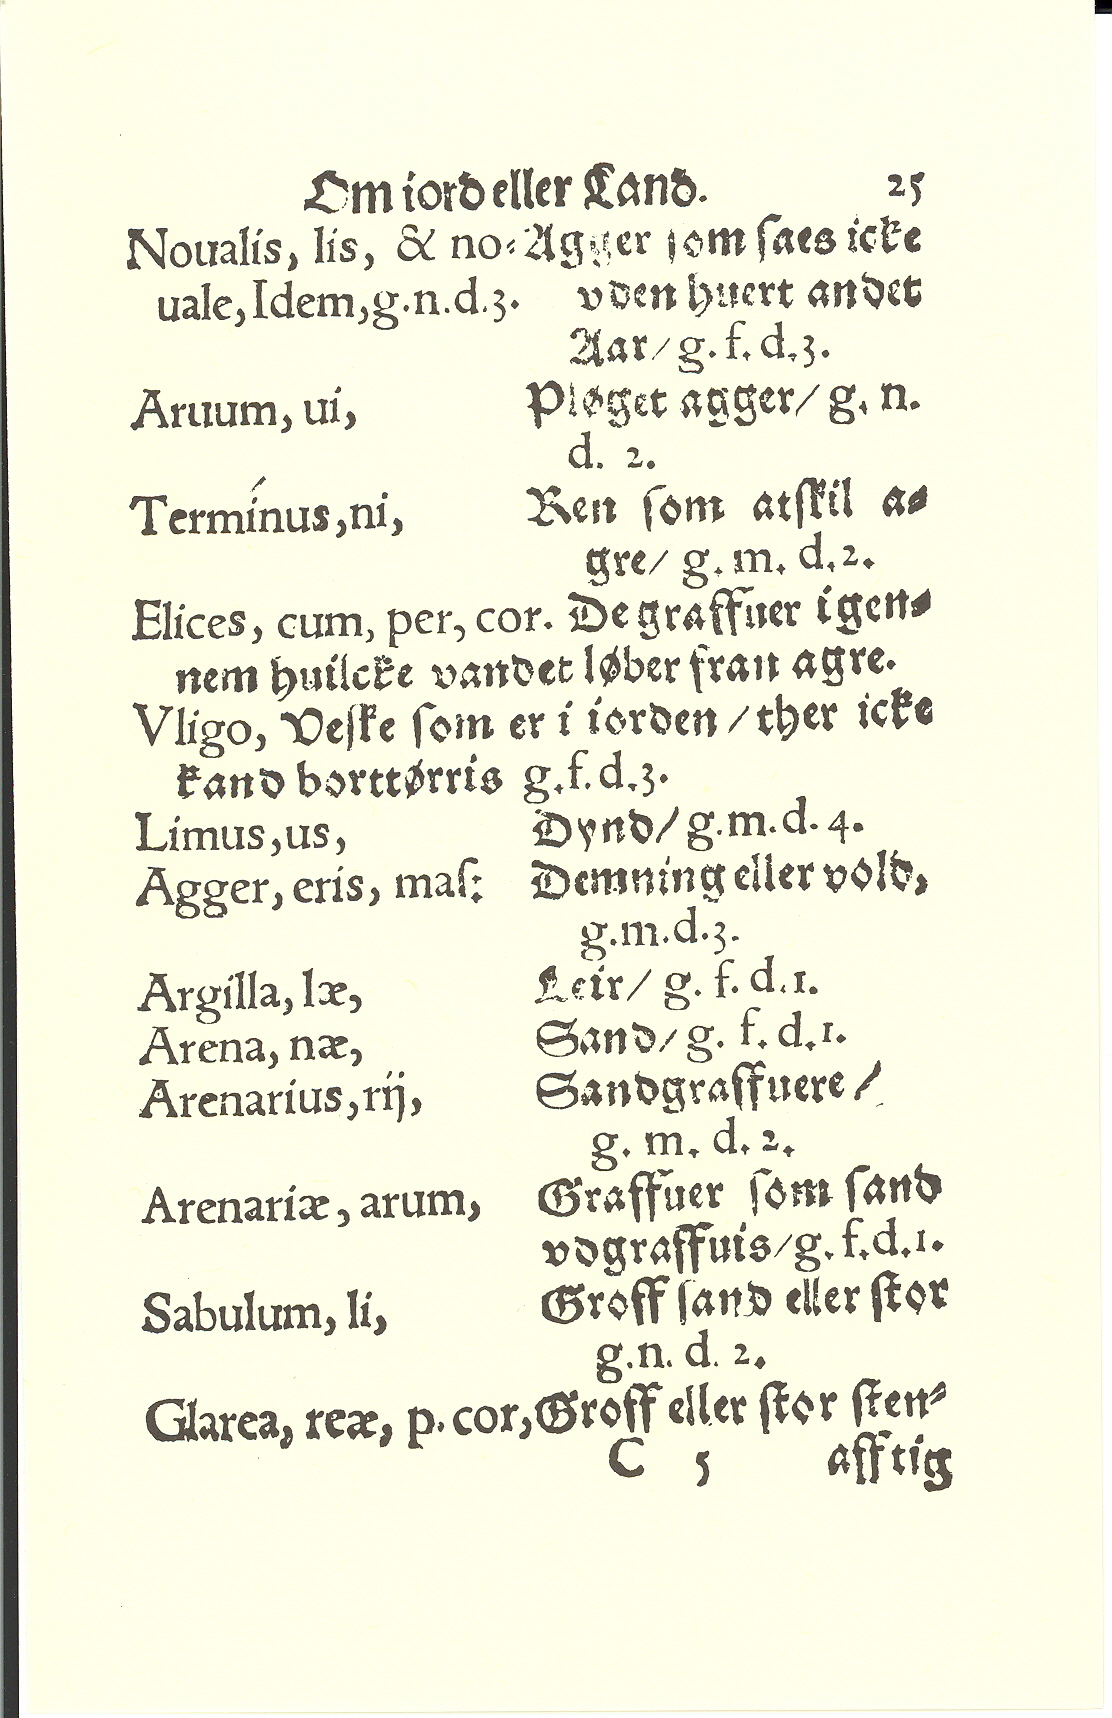 Om iord eller Land. 25
Noualis, lis, & no⸗ Agger som saes icke
uale, Idem, g.n.d.3. vden huert andet
Aar / g. f. d.3.
Aruum, ui, Pløget agger / g. n.
d. 2.
Termínus, ni, Ren som atskil a⸗
gre / g. m. d. 2.
Elices, cum, per, cor. De graffuer igen⸗
nem huilcke vandet løber fran agre.
Vligo, Veske som er i iorden / ther icke
kand borttørris g.f.d.3.
Limus, us, Dynd / g.m.d. 4.
Agger, eris, mas: Demning eller vold,
g.m.d.3.
Argilla, læ, Leir / g. f. d.1.
Arena, næ, Sand / g. f. d.1.
Arenarius, rij, Sandgraffuere /
g. m. d. 2.
Arenariæ, arum, Graffuer som sand
vdgraffuis / g. f.d.1.
Sabulum, li, Groff sand eller stor
g.n. d. 2.
Glarea, reæ, p. cor, Groff eller stor sten⸗
C 5 afftig